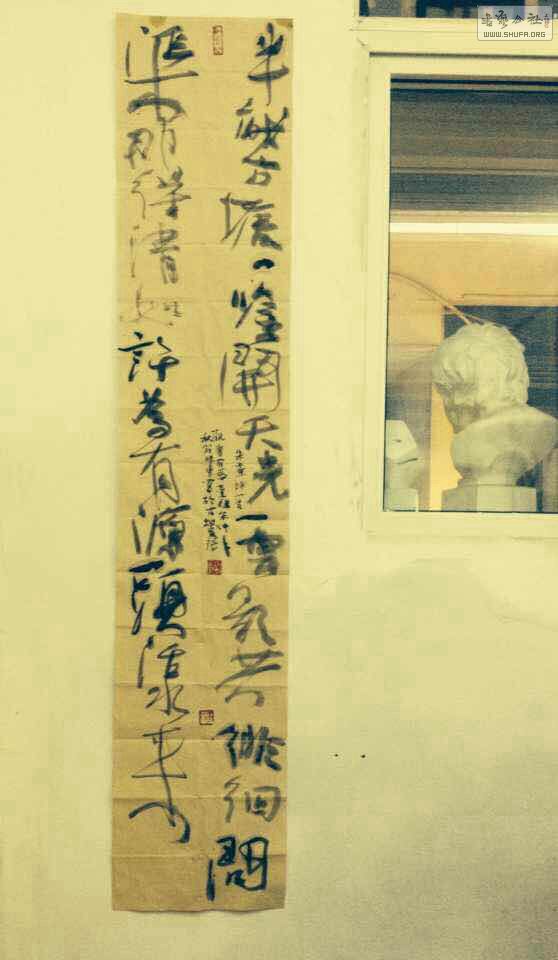 书艺公社
WWW.SHUFA.ORG
半畝方塘一鑑開天光雲影共徘徊問
渠那得清如許為有源頭活水來
朱熹詩一首
觀書有感